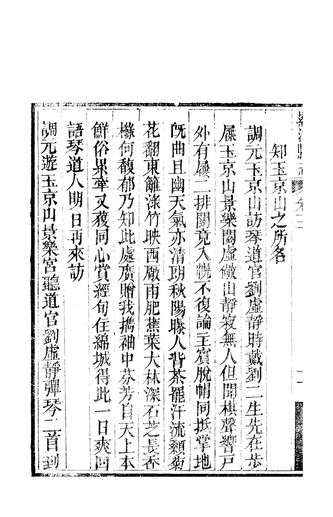 知玉京山之所名
調元玉京山訪琴道官劉虛靜時戴劉二生先在步
屧玉京山景樂閟虛敞山靜寂無人但聞棋聲響戶
外有屨二排闥竟入幌不復論主賓脫帽同抵掌地
旣曲且幽天氣亦清朗秋陽曝人背茶罷汗流顙菊
花翻東籬淥竹映西廠雨肥蕉葉大林深石芝長香
櫞何馥郁乃知此處廣贈我攜袖中芬芳自天上本
鮮俗累牽又獲同心賞經旬住綿城得此一日爽回
語琴道人明日再來訪
調元遊玉京山景樂宮聽道官劉虛靜彈琴二首到